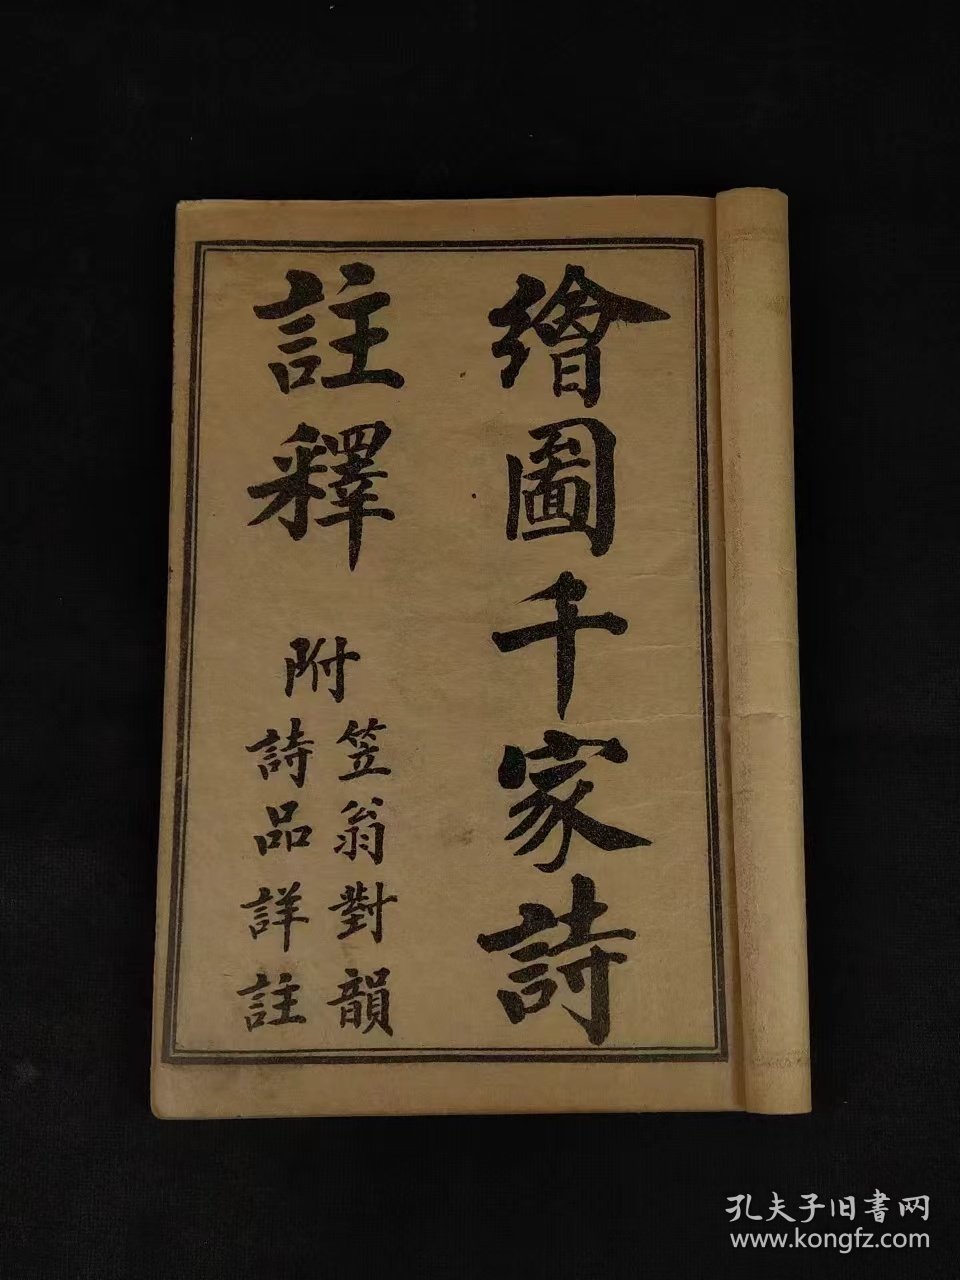 繪圖千家詩
註釋
附
笠翁對韻
詩品詳註
孔夫子旧書网
www.kongfz.com